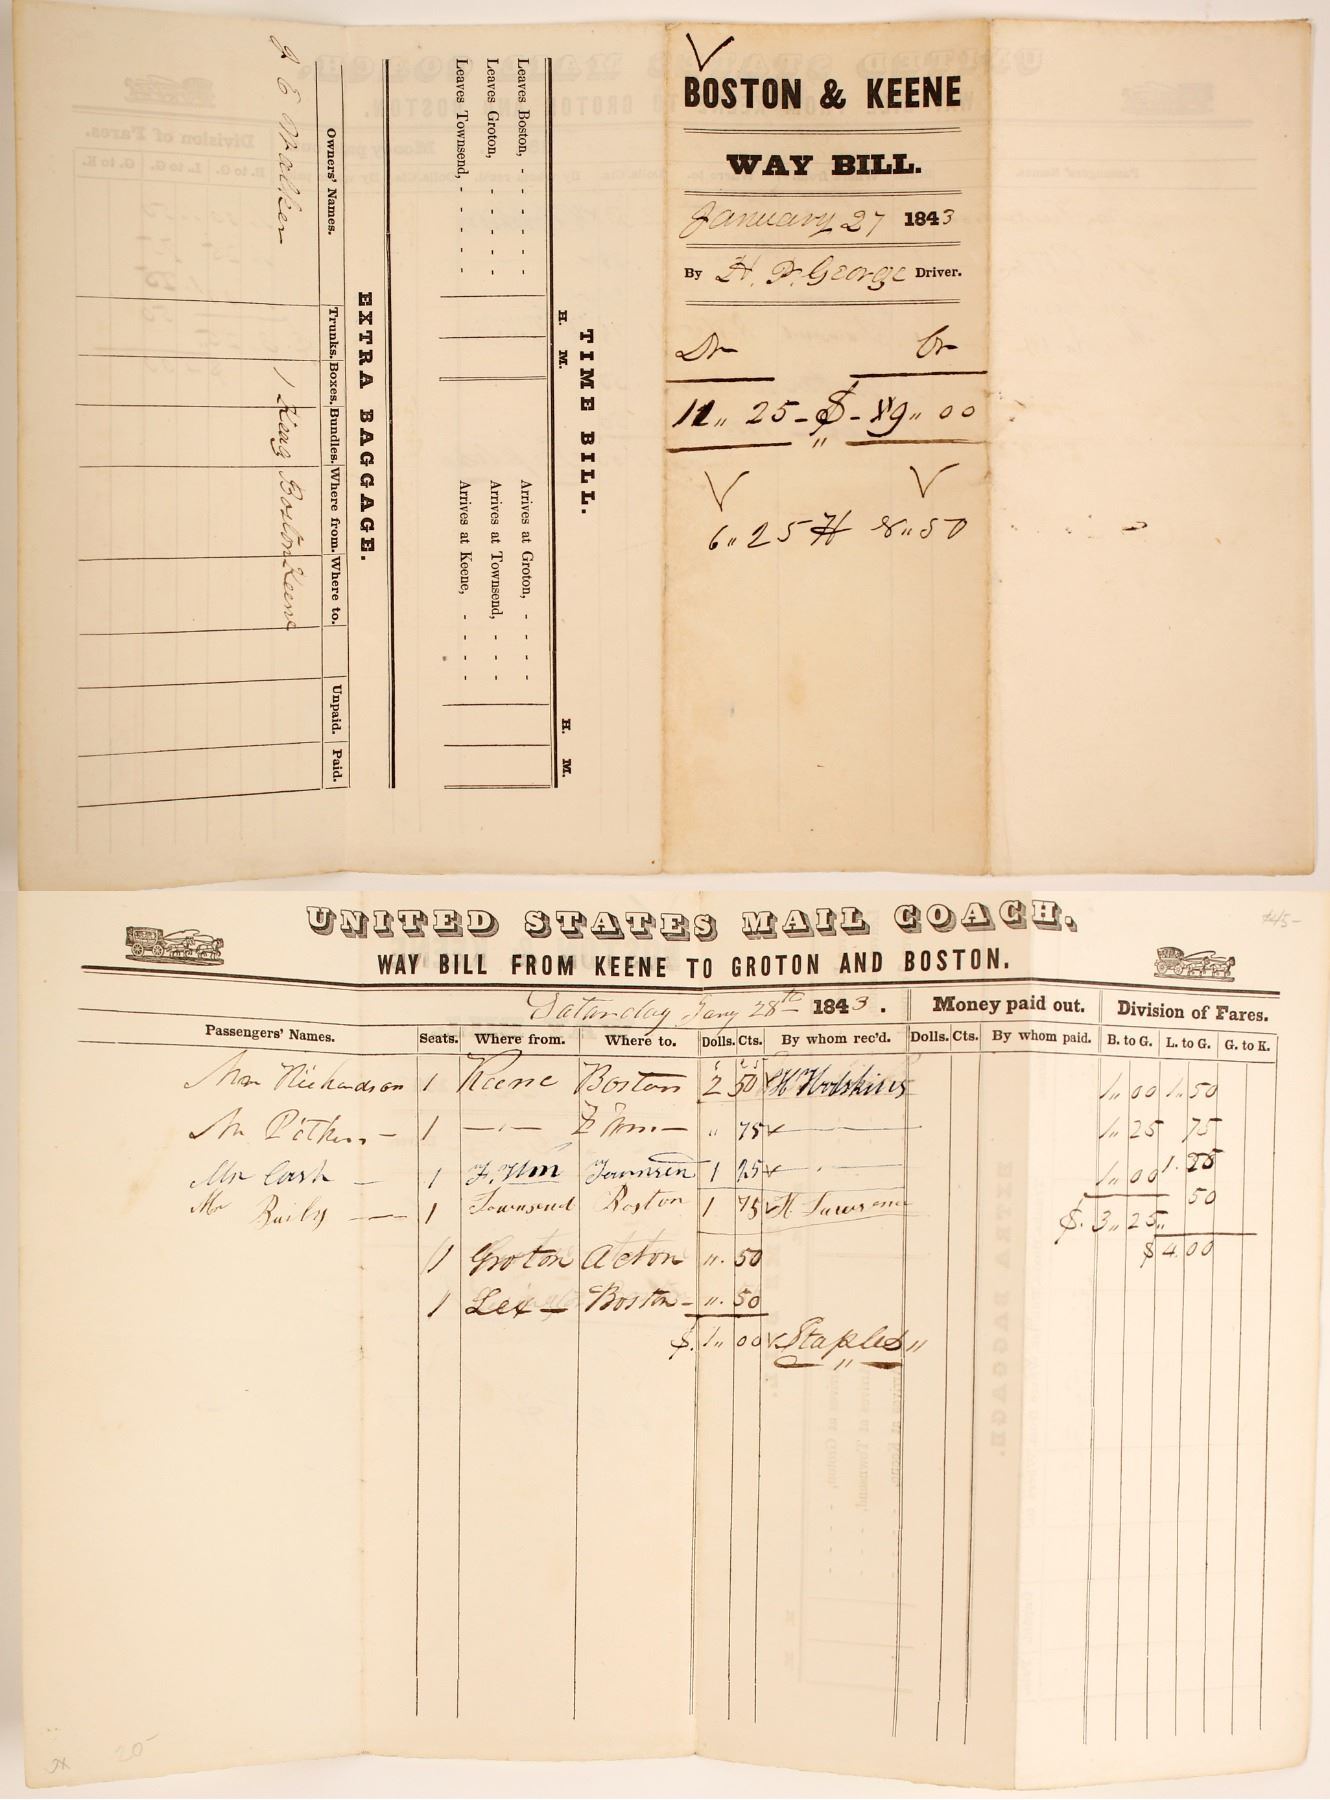 BOSTON & KEENE
WAY BILL.
January 27 1843
By H. P. George Driver.
Dr Cr
11 25 - $ - 9 00
6 25 H 8 50
TIME BILL.
H. M. H. M.
Leaves Boston, - - - - Arrives at Groton, - - - -
Leaves Groton, - - - - Arrives at Townsend, - - - -
Leaves Townsend, - - - - Arrives at Keene, - - - -
EXTRA BAGGAGE.
Owners' Names. Trunks. Boxes. Bundles. Where from. Where to. Unpaid. Paid.
A E Walker 1 Keag Boston Keene
UNITED STATES MAIL COACH.
WAY BILL FROM KEENE TO GROTON AND BOSTON.
Saturday Jany 28th 1843. Money paid out. Division of Fares.
Passengers' Names. Seats. Where from. Where to. Dolls. Cts. By whom rec'd. Dolls. Cts. By whom paid. B. to G. L. to G. G. to K.
Mr Richardson 1 Keene Boston 2 50 H Hodskins 1 00 1 50
Mr Pitkin - 1 — " — F. Wm — " 75 — 1 25 75
Mr Cash — 1 F. Wm Townsen 1 25 — 1 00 1 25
Mr Baily — 1 Townsend Boston 1 75 H Lawrence 50
$ 3 25
1 Groton Acton " 50 $ 4 00
1 Lex — Boston - " 50
$ 1 00 Staples "
$45-
20